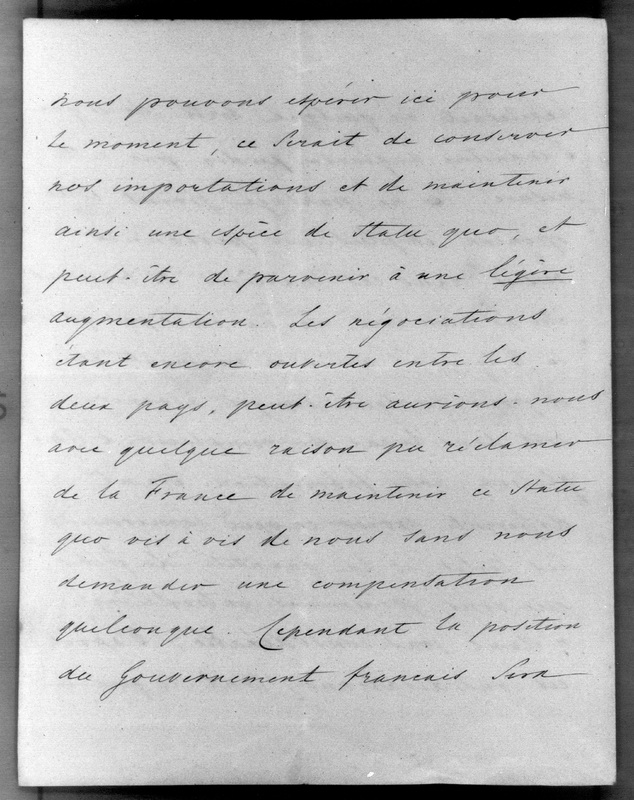 nous pouvons espérer ici pour
le moment, ce serait de conserver
nos importations et de maintenir
ainsi une espèce de Statu quo, et
peut-être de parvenir à une légère
augmentation. Les négociations
étant encore ouvertes entre les
deux pays, peut-être aurions-nous
avec quelque raison pu réclamer
de la France de maintenir ce Statu
quo vis à vis de nous sans nous
demander une compensation
quelconque. Cependant la position
du Gouvernement francais sera